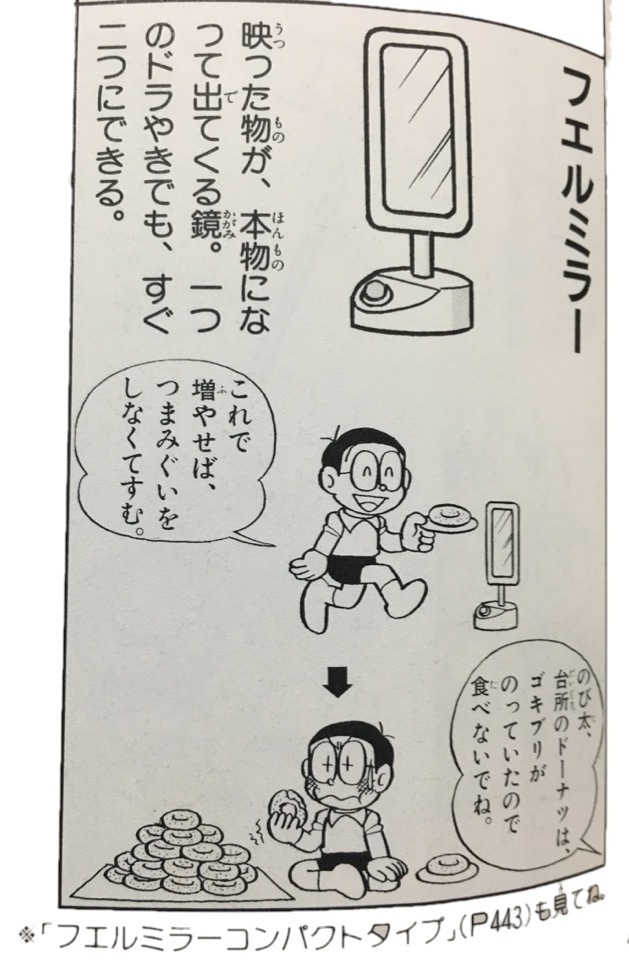 フエルミラー
映った物が、本物にな
って出てくる鏡。一つ
のドラやきでも、すぐ
二つにできる。
これで
増やせば、
つまみぐいを
しなくてすむ。
のび太、
台所のドーナツは、
ゴキブリが
のっていたので
食べないでね。
※「フエルミラーコンパクトタイプ」(P443)も見てね。